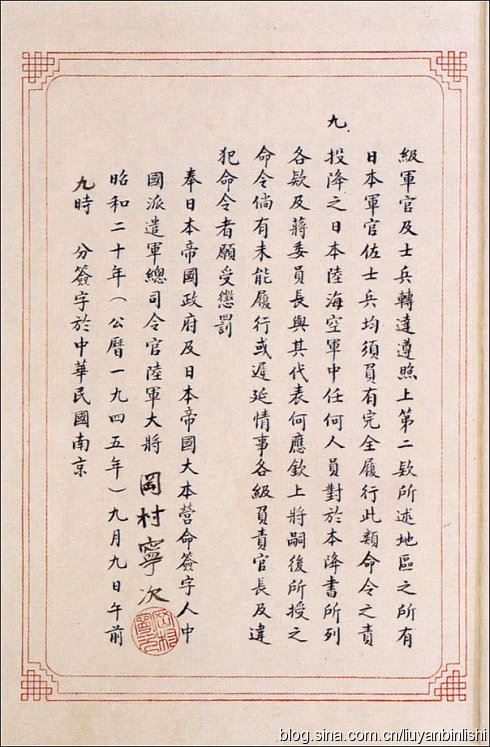 級軍官及士兵轉達遵照上第二欵所述地區之所有
日本軍官佐士兵均須負有完全履行此類命令之責
九、投降之日本陸海空軍中任何人員對於本降書所列
各欵及蔣委員長與其代表何應欽上將嗣後所授之
命令倘有未能履行或遲延情事各級負責官長及違
犯命令者願受懲罰
奉日本帝國政府及日本帝國大本營命簽字人中
國派遣軍總司令官陸軍大將 岡村寧次
昭和二十年(公曆一九四五年)九月九日午前
九時 分簽字於中華民國南京
岡村寧次
blog.sina.com.cn/liuyanbinlishi